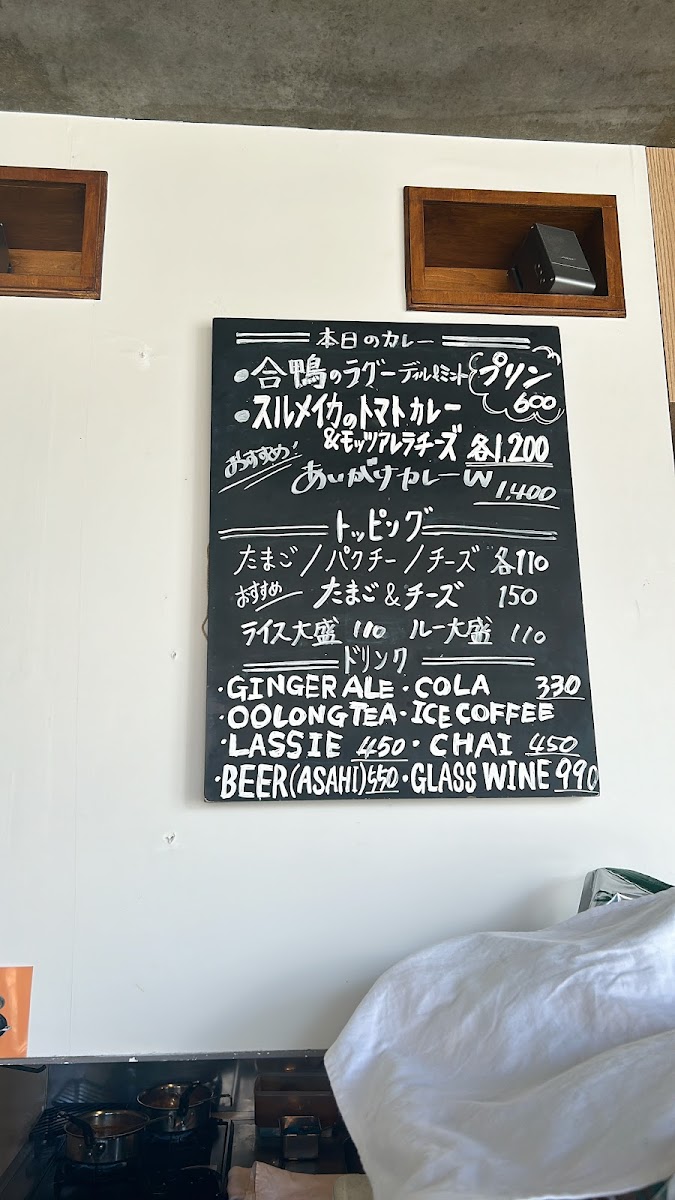 本日のカレー
・合鴨のラグーディル&ミント
プリン
600
・スルメイカのトマトカレー
&モッツアレラチーズ 各1,200
おすすめ! あいがけカレーW 1,400
トッピング
たまご/パクチー/チーズ 各110
おすすめ たまご&チーズ 150
ライス大盛 110 ルー大盛 110
ドリンク
・GINGER ALE・COLA 330
・OOLONG TEA・ICE COFFEE
・LASSIE 450・CHAI 450
・BEER(ASAHI)550・GLASS WINE 990